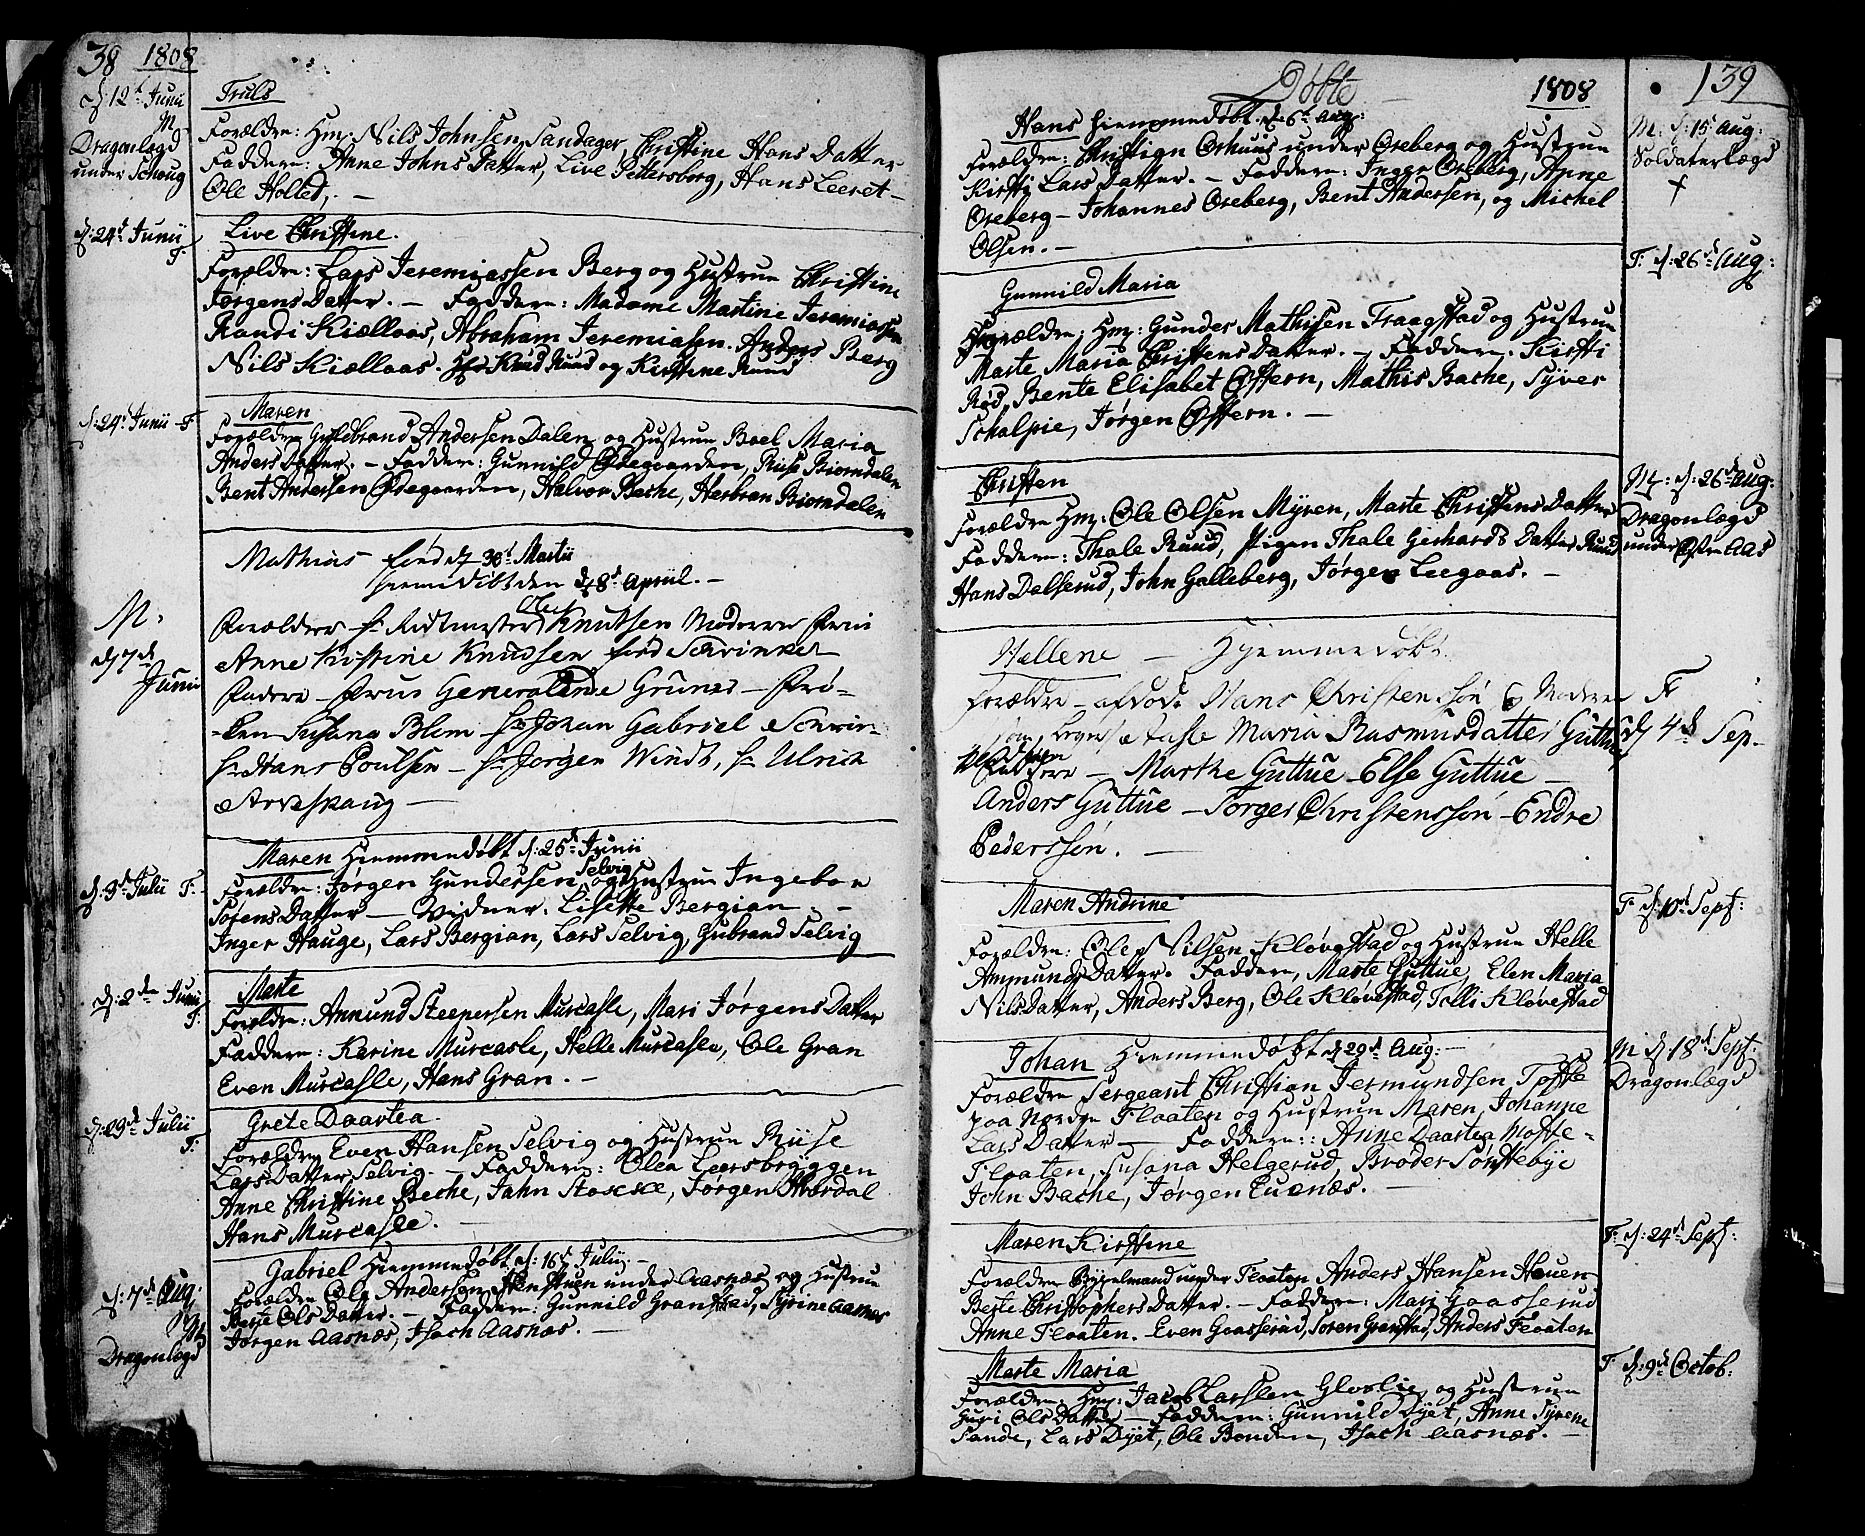 38 1808
d: 12t Junii
M.
Dragonlægd
under Schoug
Truls
Forældre: Hm: Nils Johnsen Sandager Christine Hans Datter
Faddern: Anne Johns Datter, Live Pettersborg, Hans Leeret-
Ole Holtet, -
d: 24d Junii
F.
Live Christine.
Forældre: Lars Jeremiassen Berg og Hustrue Christine
Jørgens Datter. - Faddern: Madame Martine Jeremiassen
Randi Kiællaas, Abraham Jeremiasen. Anders Berg
Nils Kiællaas. Hr Knud Ruud og Kirstine Ruud
d: 24d Junii F
Maren
Forældre Guldbrand Andersen Dalen og Hustrue Boel Maria
Anders Datter. - Faddern: Gunnild Ødegaarden, Riise Biorndalen
Bent Andersen Ødegaarden, Halvor Bache, Herbran Biorndalen
M.
d 7d
Junii
Mathias - fød d 30t Martii
hiemdøbt den d 8d April. -
Forældre Hr Ridtmester Oluf Knutsen Moderen Frue
Anne Kristine Knudsen fød Schvinker
Faddere - Frue Generalinde Gruner - Frø-
-ken Susana Blom - Hr Johan Gabriel Schvin-
Hr Hans Poulsen - Hr Jørgen Windt, Hr Ulrich
Arveskaug -
d: 3d Julii F:
Maren Hiemmedøbt d: 25d Junii
Forældre: Jørgen Gundersen Selvig og Hustrue Ingebor
Sørens Datter - Vidner. Lisette Bergian. -
Inger Hauge, Lars Bergian, Lars Selvig, Gubrand Selvig
d: 2den Junii
F:
Marte
Forældre: Anmund Steenersen Murcasle, Mari Jørgens Datter
Faddern: Karine Murcasle, Helle Murcasle, Ole Gran
Even Murcasle, Hans Gran. -
d: 29d Julii
F:
Grete Daartea.
Forældre Even Hansen Selvig og Hustrue Riise
Lars Datter Selvig. - Faddern: Olea Leersbryggen
Anne Christine Bache, Jahn Stocke, Jørgen Hvordal
Hans Murcasle.
d: 7d Aug:
M
Dragonlægd
Gabriel Hiemmedøbt d: 16d Julii -
Forældre Ole Andersen Stenstuen under Aasnæs og Hustrue
Berte Ols Datter. - Faddern: Gunnild Granstad, Syrine Aasnæs
Jørgen Aasnæs, Isach Aasnæs. -
Døbte - 1808 139
M: d: 15 Aug:
Soldaterlægd
Hans hiemmedøbt d: 6t Aug:
Forældre: Christign Orhuus under Oreberg og Hustrue
Kirsti Lars Datter. - Faddern: Inger Oreberg, Anne
Oreberg - Johannes Oreberg, Bent Andersen, og Michel
Olsen. -
F: d: 26d Aug:
Gunnild Maria
Forældre: Hm: Gunder Mathisen Fraagstad og Hustrue
Marte Maria Christens Datter. - Faddern. Kirsti
Rød, Bente Elisabet Offern, Mathis Bache, Syver
Schalpie, Jørgen Offern. -
M: d: 26d Aug:
Dragonlægd
under Østre Aas
Christen
Forældre Hm: Ole Olsen Myren, Marte Christens Datter
Faddern: Thale Ruud, Pigen Thale Gerhards Datter Ruud
Hans Delserud, John Galleberg, Jørgen Leegaas. -
Hellene - Hjemmedøbt
F
d 4d Sep-
Forældre - afdøde Hans Christenssøn & Moderen
Aasle Maria Rasmusdatter Guttue
Faddere - Marthe Guttue - Else Guttue -
Anders Guttue - Torger Christenssøn - Endre
Pederssøn. -
F: d: 10d Sept:
Maren Andrine
Forældre: Ole Nilsen Kløvstad og Hustrue Helle
Ammunds Datter. Faddern, Marte Guttue, Elen Maria
Nils Datter, Anders Berg, Ole Kløvestad, Tolli Kløvestad
M d 18d Sept:
Dragonlægd
Johan Hiemmedøbt d 29d Aug: -
Forældre Sergeant Christian Jermundsen Tofte
paa Nordre Floaten og Hustrue Maren Johanne
Lars Datter - Faddern: Anne Daartea Mofte-
Floaten, Susana Helgerud, Broder Sørsteby
John Bache, Jørgen Euenæs. -
F. d: 24d Sept:
Maren Kirstine
Forældre Bygselmand under Floaten Anders Hansen Houen
Berte Christophers Datter. - Faddern: Mari Gaasserud
Anne Floaten. Even Gaasserud, Soren Granstad, Anders Floaten
F: d: 9d Octob:
Marte Maria
Forældre, Hm: Jacob Larssen Gloslie og Hustrue
Guri Ols Datter - Faddern: Gunnild Dyet, Anne Syrene
Sande, Lars Dyet, Ole Bonden, Isach Aasnæs. -